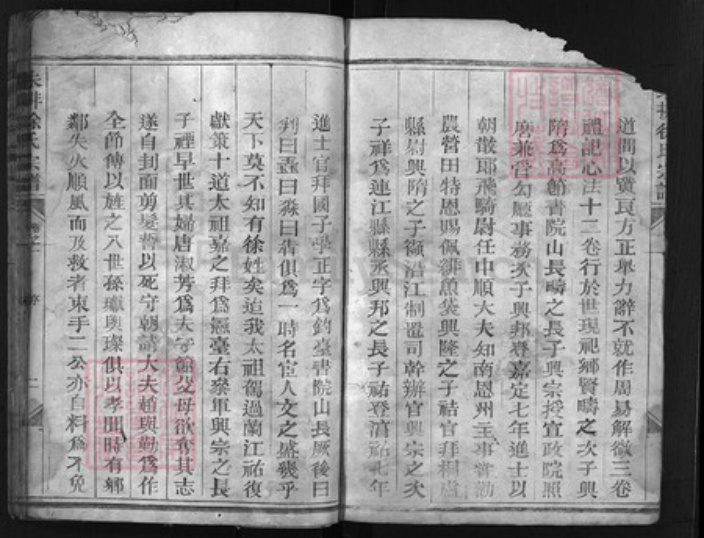 道間以賢良方正舉力辭不就作周易解微三卷
禮記心法十二卷行於世現祀鄉賢疇之次子興
隋為高節書院山長疇之長子興宗授宣政院照
磨兼管勾廳事務次子興邦登嘉定七年進士以
朝散郎飛騎尉任中順大夫知南恩州主事兼勸
農營田特恩賜佩緋魚袋興隆之子祜官拜桐廬
縣尉興隋之子顯沿江制置司幹辦官興宗之次
子祥為連江縣縣丞興邦之長子祐登淳祐七年
進士官拜國子學正字為釣臺書院山長厥後曰
列曰蠢曰淼曰犇俱為一時名宦人文之盛幾乎
天下莫不知有徐姓矣迨我太祖駕過蘭江祐復
獻策十道太祖嘉之拜為憲臺右參軍興宗之長
子禋早世其婦唐淑芳為夫守館父母欲奪其志
遂自封面剪髮誓以死守朝請大夫趙與勤為作
全節傳以旌之八世孫瓛與璨俱以孝聞時有鄉
鄰失火順風而及救者束手二公亦自料為不免
徐氏宗譜